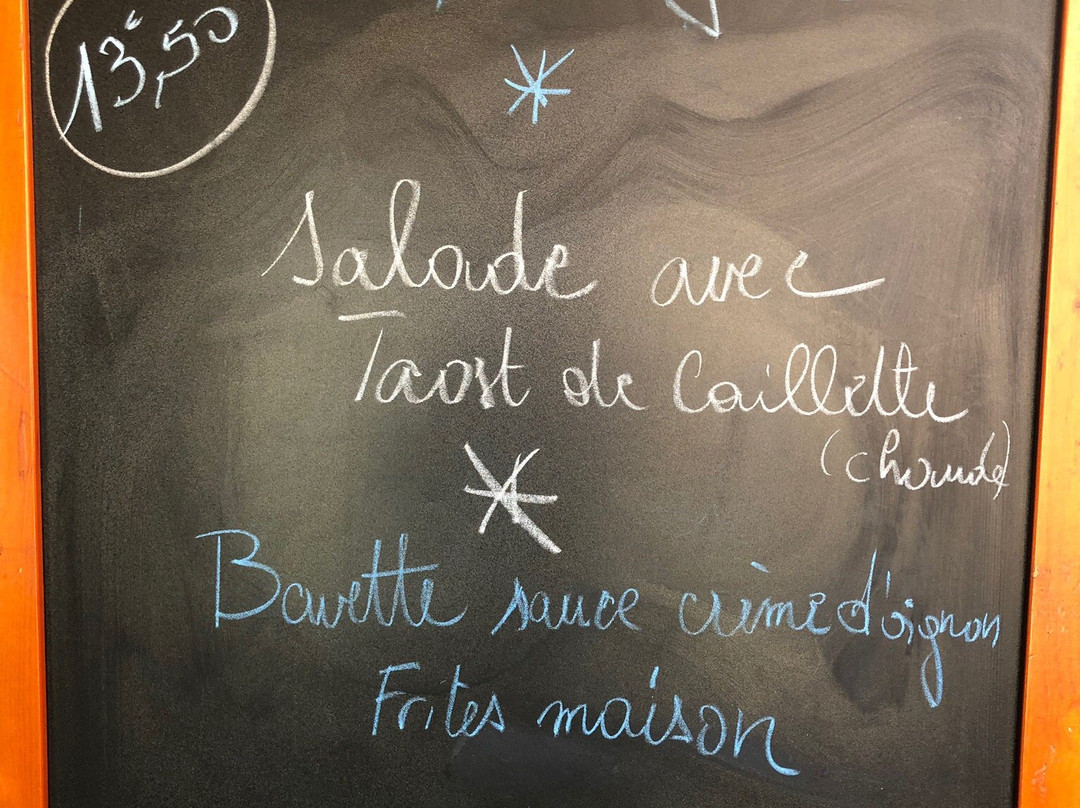 13,50
Salade avec
Taost de Caillette
(chaude)
Bavette sauce crème d'oignon
Frites maison